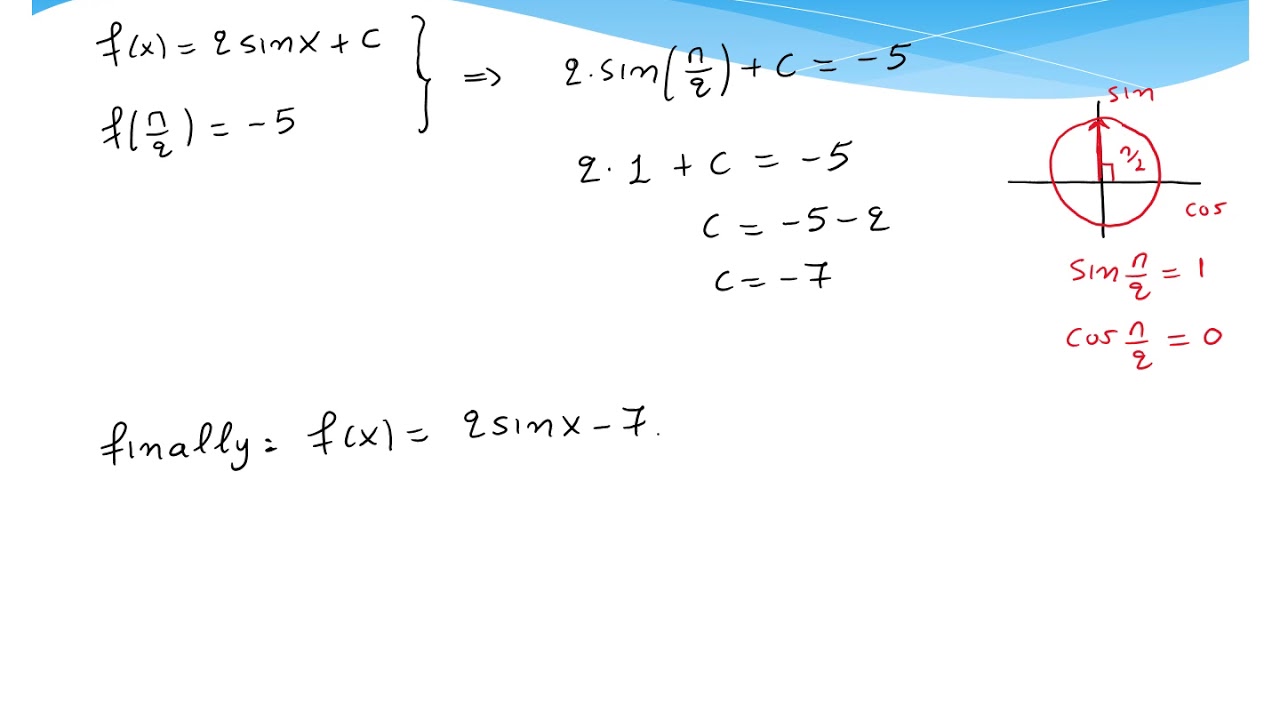 f(x) = 2 sinx + c
f(π/2) = -5
=> 2·sin(π/2) + c = -5
2·1 + c = -5
c = -5 - 2
c = -7
sin
π/2
cos
sin π/2 = 1
cos π/2 = 0
finally: f(x) = 2 sinx - 7.